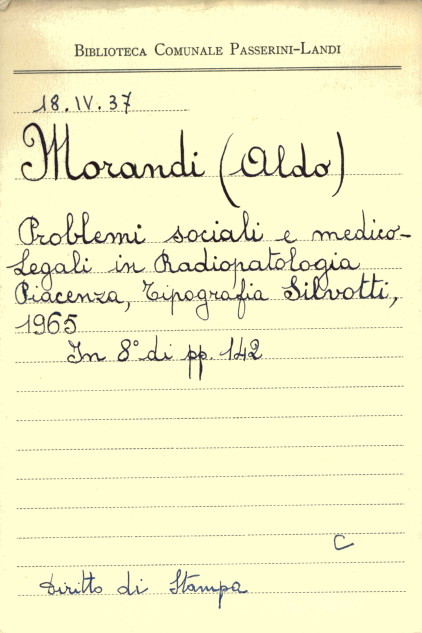 BIBLIOTECA COMUNALE PASSERINI-LANDI
18.IV.37
Morandi (Aldo)
Problemi sociali e medico-
Legali in Radiopatologia
Piacenza, Tipografia Silvotti,
1965
In 8° di pp. 142
C
Diritto di Stampa